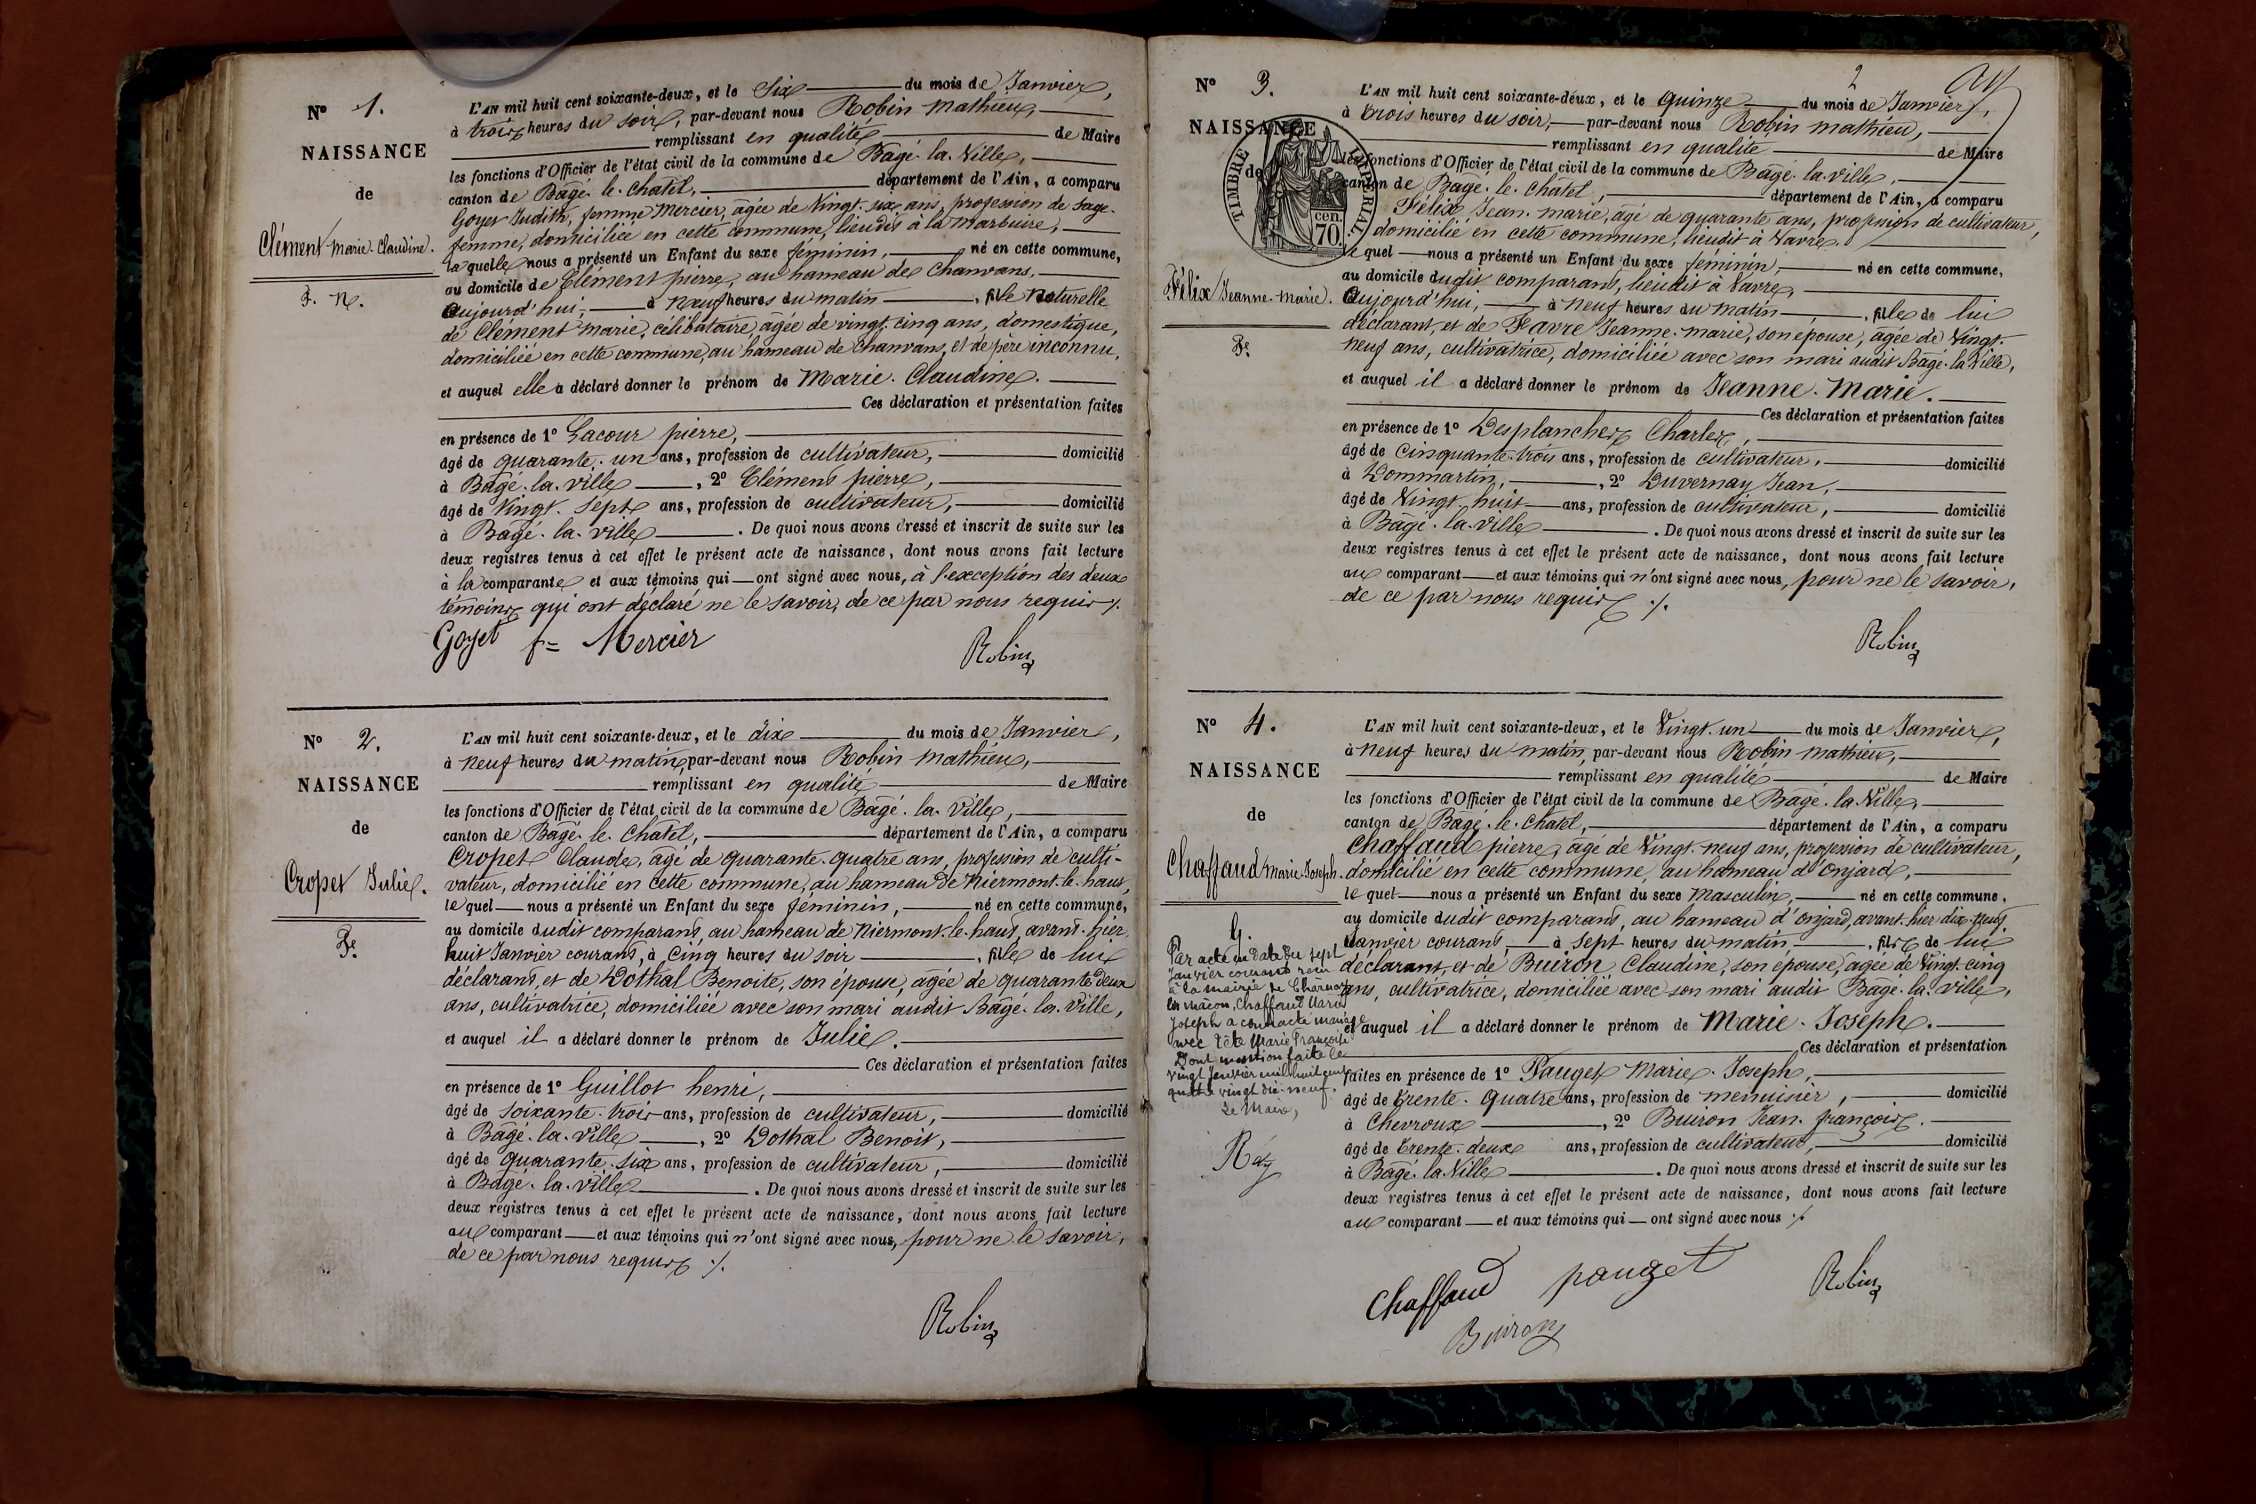 N° 1.
NAISSANCE
de
Clément Marie-Claudine.
F. N.
L'AN mil huit cent soixante-deux, et le Six du mois de Janvier,
à trois heures du soir, par-devant nous Robin Mathieu,
remplissant en qualité de Maire
les fonctions d'Officier de l'état civil de la commune de Bâgé-la-Ville,
canton de Bâgé-le-Châtel, département de l'Ain, a comparu
Goyet Judith, femme Mercier, âgée de Vingt-six ans, profession de Sage-
femme, domiciliée en cette commune, lieudit à la Marbuire,
laquelle nous a présenté un Enfant du sexe féminin, né en cette commune,
au domicile de Clément pierre, au hameau de Chanvans,
Aujourd'hui, à Neuf heures du matin, fille Naturelle
de Clément Marie, célibataire, âgée de vingt-cinq ans, domestique,
domiciliée en cette commune, au hameau de Chanvans, et de père inconnu,
et auquel elle a déclaré donner le prénom de Marie-Claudine.
Ces déclaration et présentation faites
en présence de 1° Lacour pierre,
âgé de quarante-un ans, profession de cultivateur, domicilié
à Bâgé-la-Ville, 2° Clément pierre,
âgé de Vingt-Sept ans, profession de cultivateur, domicilié
à Bâgé-la-Ville. De quoi nous avons dressé et inscrit de suite sur les
deux registres tenus à cet effet le présent acte de naissance, dont nous avons fait lecture
à la comparante et aux témoins qui ont signé avec nous, à l'exception des deux
témoins qui ont déclaré ne le savoir, de ce par nous requis ./.
Goyet f= Mercier
Robin
N° 2.
NAISSANCE
de
Cropet Julie.
Fe
L'AN mil huit cent soixante-deux, et le dix du mois de Janvier,
à Neuf heures du matin, par-devant nous Robin Mathieu,
remplissant en qualité de Maire
les fonctions d'Officier de l'état civil de la commune de Bâgé-la-Ville,
canton de Bâgé-le-Châtel, département de l'Ain, a comparu
Cropet Claude, âgé de quarante-quatre ans, profession de culti-
vateur, domicilié en cette commune, au hameau de Niermont-le-haut,
lequel nous a présenté un Enfant du sexe féminin, né en cette commune,
au domicile dudit comparant, au hameau de Niermont-le-haut, avant-hier
huit Janvier courant, à Cinq heures du soir, fille de lui
déclarant, et de Dothal Benoite, son épouse, âgée de quarante-deux
ans, cultivatrice, domiciliée avec son mari audit Bâgé-la-Ville,
et auquel il a déclaré donner le prénom de Julie.
Ces déclaration et présentation faites
en présence de 1° Guillot henri,
âgé de soixante-trois ans, profession de cultivateur, domicilié
à Bâgé-la-Ville, 2° Dothal Benoit,
âgé de quarante-six ans, profession de cultivateur, domicilié
à Bâgé-la-Ville. De quoi nous avons dressé et inscrit de suite sur les
deux registres tenus à cet effet le présent acte de naissance, dont nous avons fait lecture
au comparant et aux témoins qui n'ont signé avec nous, pour ne le savoir,
de ce par nous requis ./.
Robin
2
N° 3.
NAISSANCE
de
TIMBRE IMPERIAL
cen.
70.
Félix Jeanne-Marie.
Fe
L'AN mil huit cent soixante-deux, et le quinze du mois de Janvier,
à trois heures du soir, par-devant nous Robin Mathieu,
remplissant en qualité de Maire
les fonctions d'Officier de l'état civil de la commune de Bâgé-la-Ville,
canton de Bâgé-le-Châtel, département de l'Ain, a comparu
Félix Jean-Marie, âgé de quarante ans, profession de cultivateur,
domicilié en cette commune, lieudit à Vavre,
lequel nous a présenté un Enfant du sexe féminin, né en cette commune,
au domicile dudit comparant, lieudit à Vavre,
Aujourd'hui, à Neuf heures du matin, fille de lui
déclarant, et de Favre Jeanne-Marie, son épouse, âgée de Vingt-
neuf ans, cultivatrice, domiciliée avec son mari audit Bâgé-la-Ville,
et auquel il a déclaré donner le prénom de Jeanne-Marie.
Ces déclaration et présentation faites
en présence de 1° Desplanches Charles,
âgé de Cinquante-trois ans, profession de cultivateur, domicilié
à Dommartin, 2° Duvernay Jean,
âgé de Vingt-huit ans, profession de cultivateur, domicilié
à Bâgé-la-Ville. De quoi nous avons dressé et inscrit de suite sur les
deux registres tenus à cet effet le présent acte de naissance, dont nous avons fait lecture
au comparant et aux témoins qui n'ont signé avec nous, pour ne le savoir,
de ce par nous requis ./.
Robin
N° 4.
NAISSANCE
de
Chaffaud Marie-Joseph.
G.
Par acte en date du sept
Janvier courant reçu
à la mairie de Charnay
les macon, Chaffaud Marie
Joseph a contracté mariage
avec Tête Marie Françoise
Dont mention faite le
vingt Janvier mil huit cent
quatre vingt dix-neuf.
Le Maire,
L'AN mil huit cent soixante-deux, et le Vingt-un du mois de Janvier,
à Neuf heures du matin, par-devant nous Robin Mathieu,
remplissant en qualité de Maire
les fonctions d'Officier de l'état civil de la commune de Bâgé-la-Ville,
canton de Bâgé-le-Châtel, département de l'Ain, a comparu
Chaffaud pierre, âgé de Vingt-neuf ans, profession de cultivateur,
domicilié en cette commune, au hameau d'Onjard,
lequel nous a présenté un Enfant du sexe Masculin, né en cette commune,
au domicile dudit comparant, au hameau d'Onjard, avant-hier dix-neuf
Janvier courant, à Sept heures du matin, fils de lui
déclarant, et de Buiron Claudine, son épouse, âgée de Vingt-cinq
ans, cultivatrice, domiciliée avec son mari audit Bâgé-la-Ville,
et auquel il a déclaré donner le prénom de Marie-Joseph.
Ces déclaration et présentation
faites en présence de 1° Pauget Marie-Joseph,
âgé de Trente-quatre ans, profession de menuisier, domicilié
à Chevroux, 2° Buiron Jean-françois.
âgé de Trente-deux ans, profession de cultivateur, domicilié
à Bâgé-la-Ville. De quoi nous avons dressé et inscrit de suite sur les
deux registres tenus à cet effet le présent acte de naissance, dont nous avons fait lecture
au comparant et aux témoins qui ont signé avec nous ./.
Chaffaud pauget Robin
Buiron